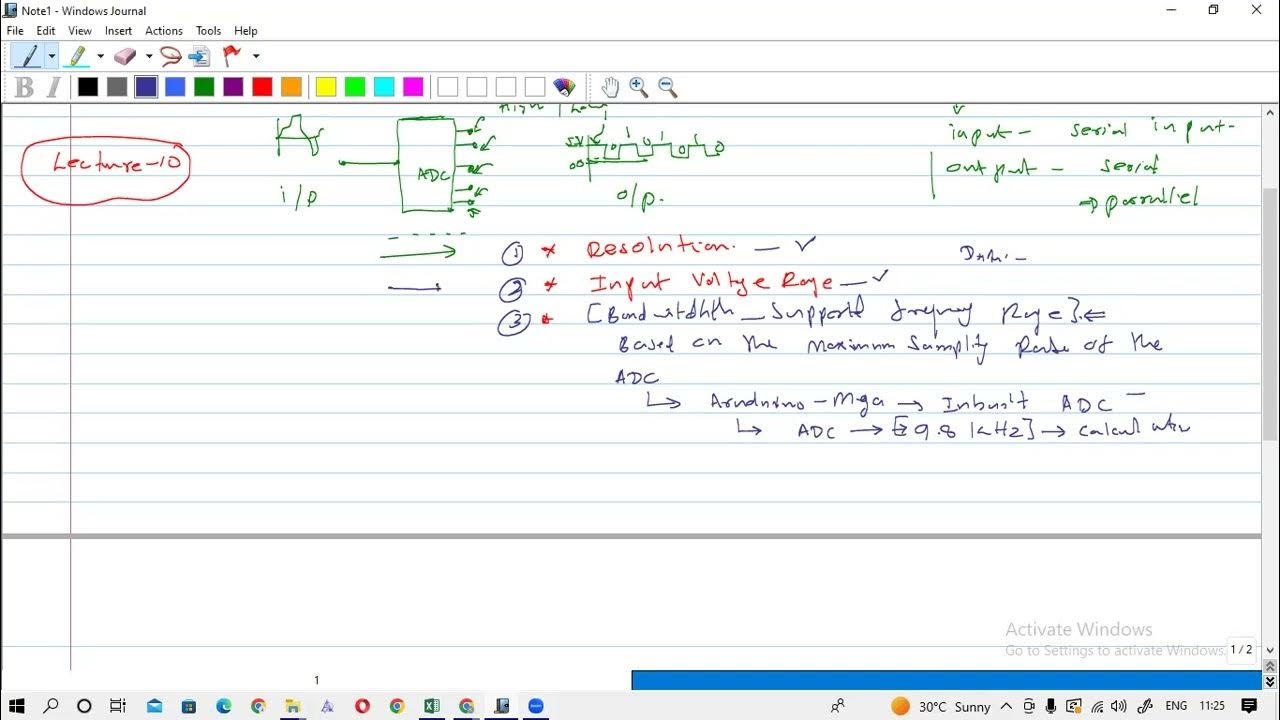 Note1 - Windows Journal
File Edit View Insert Actions Tools Help
B I
High / Low
Lecture-10
ADC
i/p
5V
1 0 1 0 1 0 1 0
o/p.
input - serial input-
output - serial
→ parallel
① * Resolution. — ✓
② * Input Voltage Rage — ✓
③ * [Bandwidthth — Supports frequency Rage] ⇐
Based on the Maximum Sampling Rate of the
ADC
↳ Arudnino-Mga → Inbuilt ADC —
↳ ADC → [9.8 kHz] → calculation
Activate Windows
Go to Settings to activate Windows.
1 / 2
1
30°C Sunny
ENG 11:25